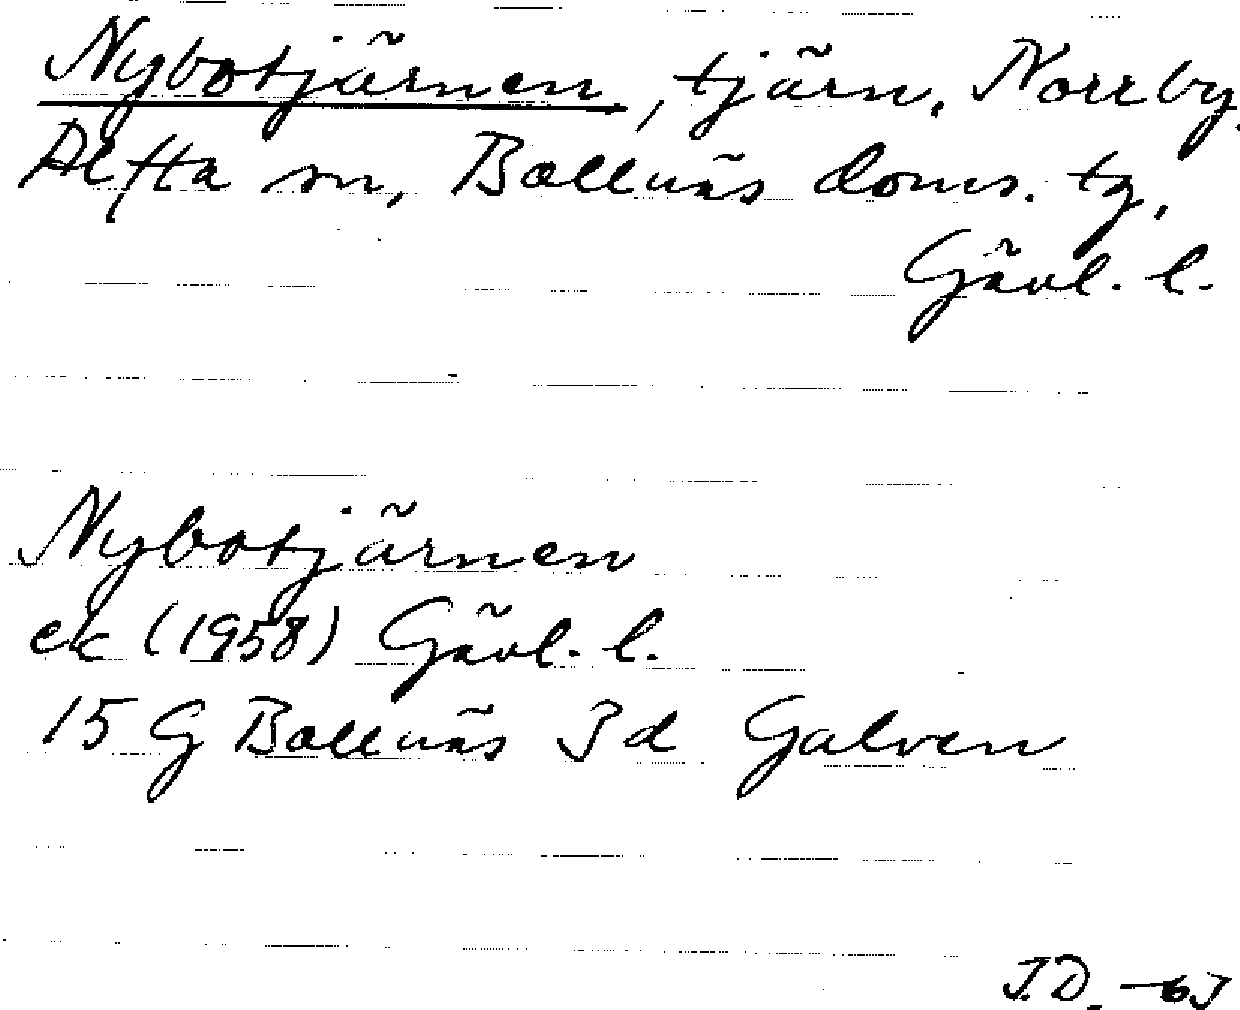 Nybotjärnen, tjärn, Norrby,
Alfta sn, Bollnäs doms. tg,
Gävl. l.
Nybotjärnen
ek (1958) Gävl. l.
15 G Bollnäs 3 d Galven
J.D. -63